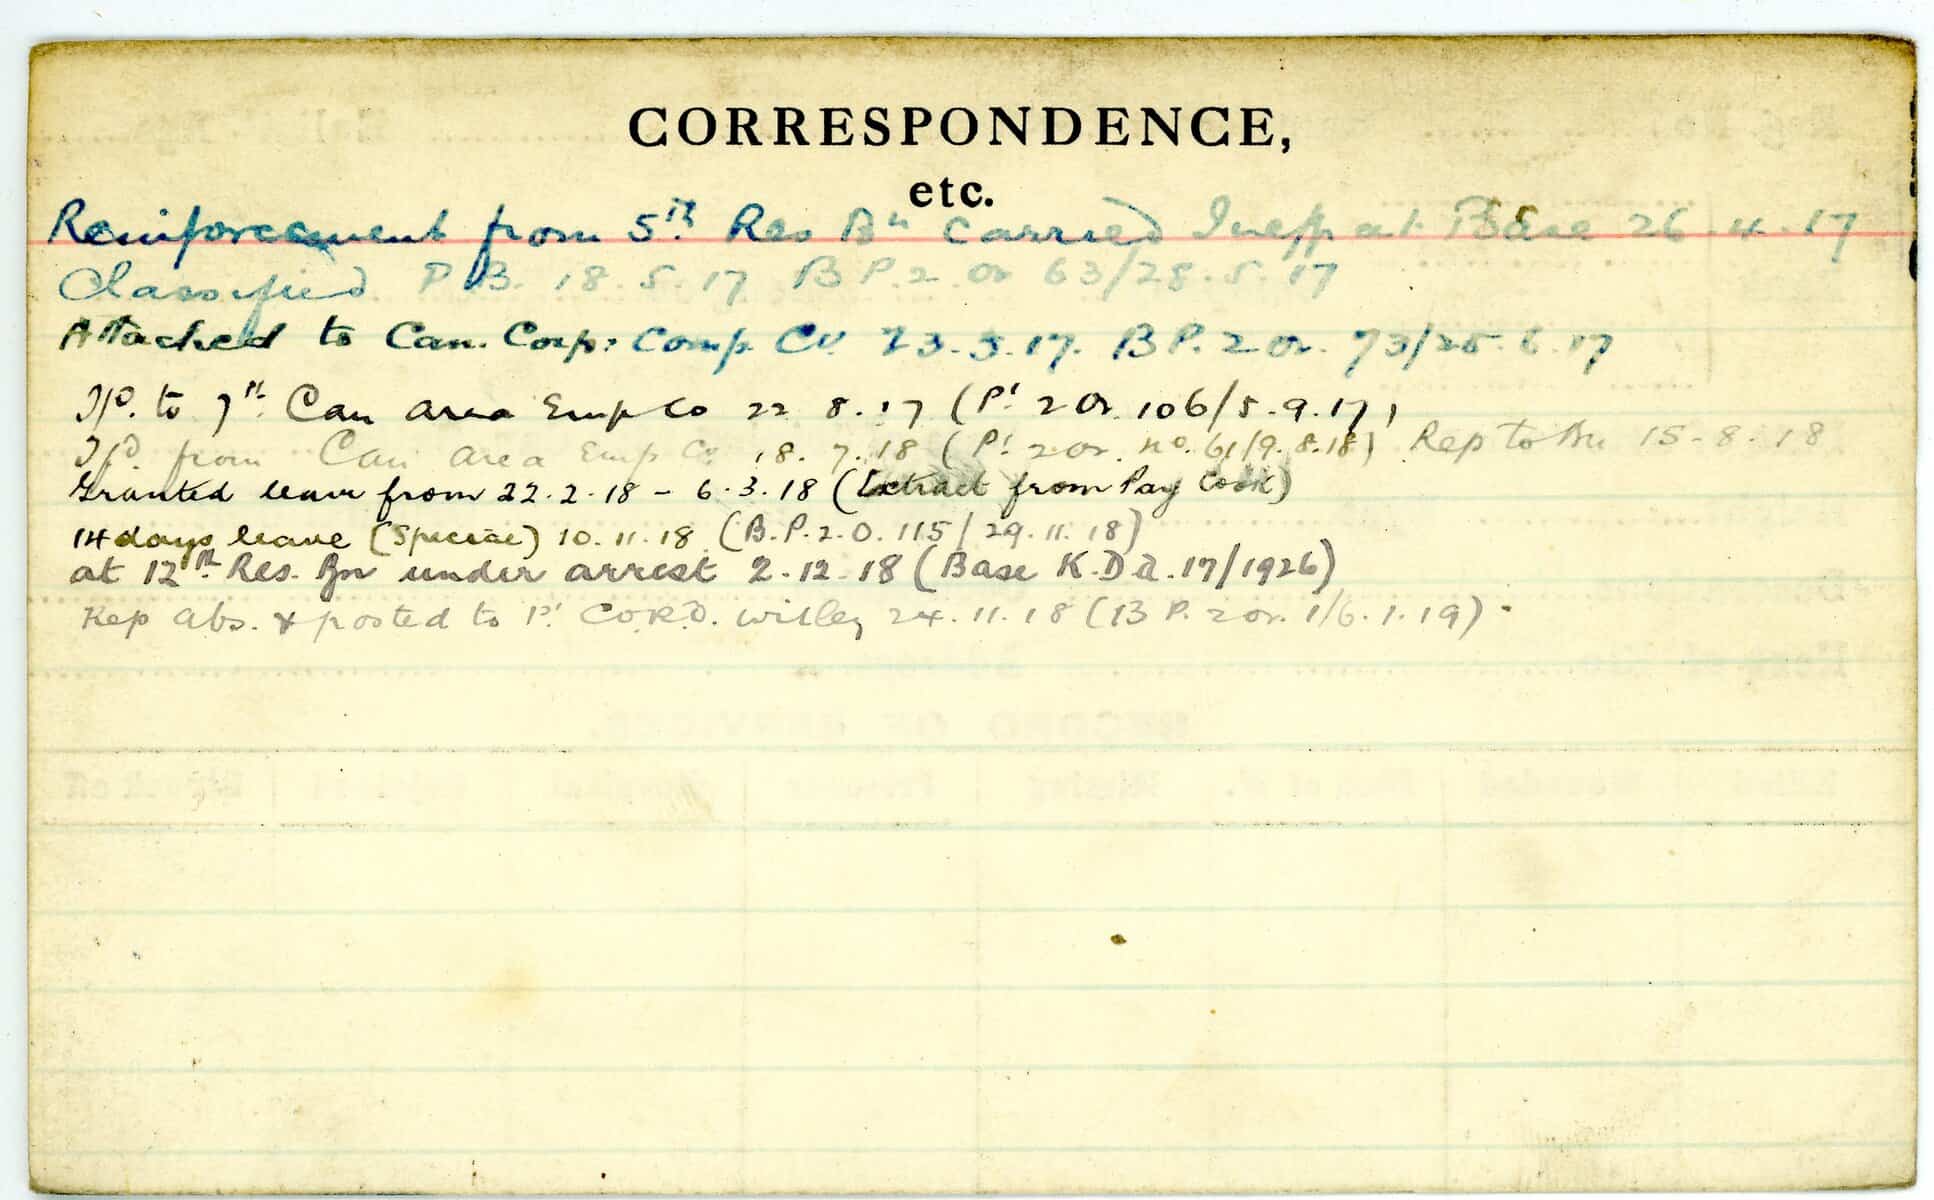 CORRESPONDENCE,
etc.
Reinforcement from 5th Res Bn Carried Ineff at Base 26.4.17
Classified P.B. 18.5.17 B P.2 Or 63/28.5.17
Attached to Can. Corp: Comp. Co. 23.5.17. B P. 2 Or. 73/25.6.17
T/d. to 7th Can Area Emp Co 22 8.17 (Pt 2 Or 106/5.9.17)
T/d. from Can Area Emp Co 18.7.18 (Pt 2 or. no. 61/9.8.18) Rep to Bn 15-8.18
Granted leave from 22.2.18 - 6.3.18 (Extract from Pay Book)
14 days leave (Special) 10.11.18 (B.P.2.O.115/29.11.18)
at 12th Res. Bn under arrest 2.12.18 (Base K.D a.17/1926)
Rep Abs. & posted to Pt C.O.R.D. Witley 24.11.18 (B P. 2 or. 1/6.1.19).
RECORD OF SERVICE